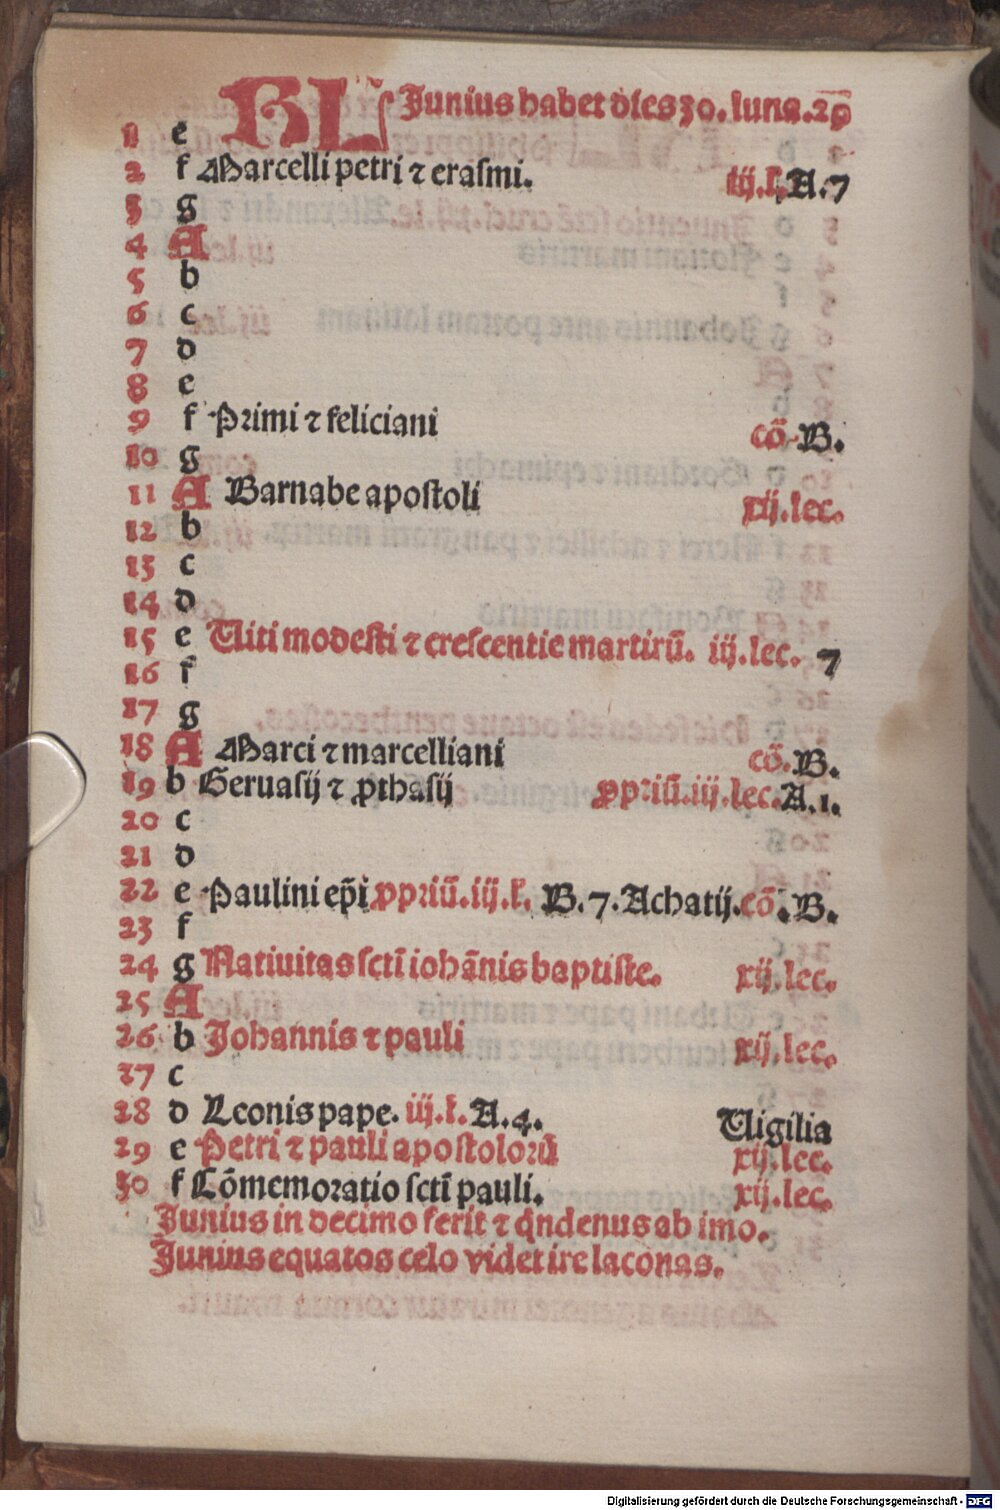 KL Junius habet dies 30. luna. 29
1 e
2 f Marcelli petri ⁊ erasmi. iij.l. A. 7
3 g
4 A
5 b
6 c
7 d
8 e
9 f Primi ⁊ feliciani cō. B.
10 g
11 A Barnabe apostoli xij. lec.
12 b
13 c
14 d
15 e Uiti modesti ⁊ crescentie martirū. iij. lec. 7
16 f
17 g
18 A Marci ⁊ marcelliani cō. B.
19 b Geruasij ⁊ ꝓthasij ꝓpriū. iij. lec. A. 1.
20 c
21 d
22 e Paulini ep̄i ꝓpriū. iij. l. B. 7. Achatij. cō. B.
23 f
24 g Natiuitas sctī iohānis baptiste. xij. lec.
25 A
26 b Johannis ⁊ pauli xij. lec.
27 c
28 d Leonis pape. iij. l. A. 4. Uigilia
29 e Petri ⁊ pauli apostolorū xij. lec.
30 f Cōmemoratio sctī pauli. xij. lec.
Junius in decimo ferit ⁊ q̄ndenus ab imo.
Junius equatos celo videt ire laconas.
Digitalisierung gefördert durch die Deutsche Forschungsgemeinschaft - DFG